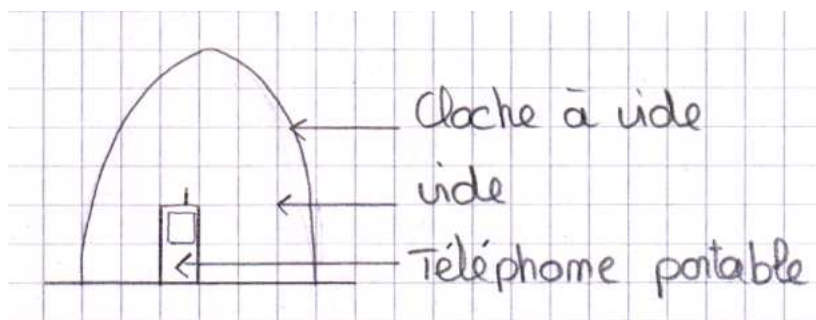 Cloche à vide
vide
Téléphone portable